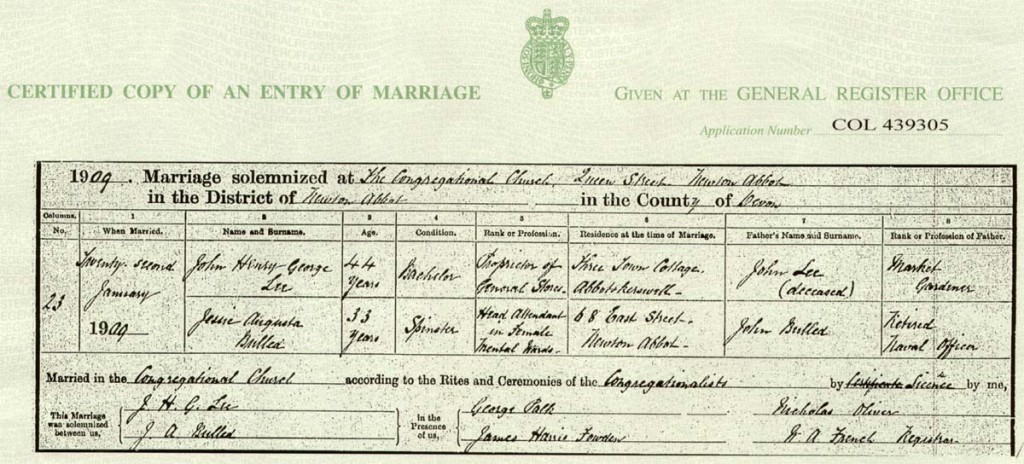 CERTIFIED COPY OF AN ENTRY OF MARRIAGE
GIVEN AT THE GENERAL REGISTER OFFICE
Application Number COL 439305
1909. Marriage solemnized at The Congregational Church, Queen Street Newton Abbot
in the District of Newton Abbot in the County of Devon
Columns. 1 2 3 4 5 6 7 8
No. When Married. Name and Surname. Age. Condition. Rank or Profession. Residence at the time of Marriage. Father's Name and Surname. Rank or Profession of Father.
23
Twenty-second
January
1909
John Henry George
Lee
44
Years
Bachelor
Proprietor of
General Stores
Three Town Cottage
Abbotskerswell
John Lee
(deceased)
Market
Gardener
Jessie Augusta
Bulled
33
Years
Spinster
Head Attendant
in Female
Mental Wards
68 East Street
Newton Abbot
John Bulled
Retired
Naval Officer
Married in the Congregational Church according to the Rites and Ceremonies of the Congregationalists by Certificate Licence by me,
This Marriage
was solemnized
between us,
J. H. G. Lee
J A Bulled
In the
Presence
of us,
George Palk
James Harris
Nicholas Oliver
W A French Registrar